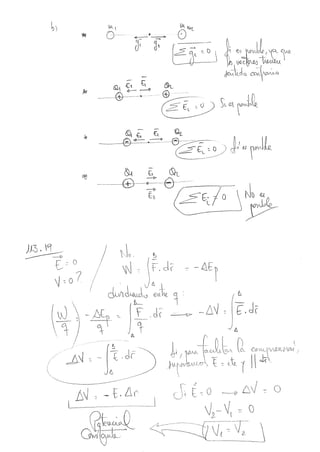 b)
m₁ m₂
g⃗₁ g⃗₂
Σ g⃗ᵢ = 0 Sí es posible, ya que
los vectores tienen
sentido contrario
Q₁ E⃗₂ E⃗₁ Q₂
+ +
Σ E⃗ᵢ = 0 Sí es posible
Q₁ E⃗₁ E⃗₂ Q₂
- -
Σ E⃗ᵢ = 0 Sí es posible
Q₁ E⃗₁ Q₂
+ -
E⃗₂
Σ E⃗ᵢ ≠ 0 No es
posible
113.19
E⃗ = 0
V = 0?
No.
W = ∫ F⃗ · dr⃗ = - ΔEp
dividiendo entre q:
(W/q) = -ΔEp/q = ∫ F⃗/q · dr⃗ → -ΔV = ∫ E⃗ · dr⃗
ΔV = - ∫ E⃗ · dr⃗ Si, para facilitar la comprensión,
suponemos E = cte y || dr⃗
ΔV = - E · Δr Si E⃗ = 0 → ΔV = 0
V₂ - V₁ = 0
Potencial
Constante V₁ = V₂